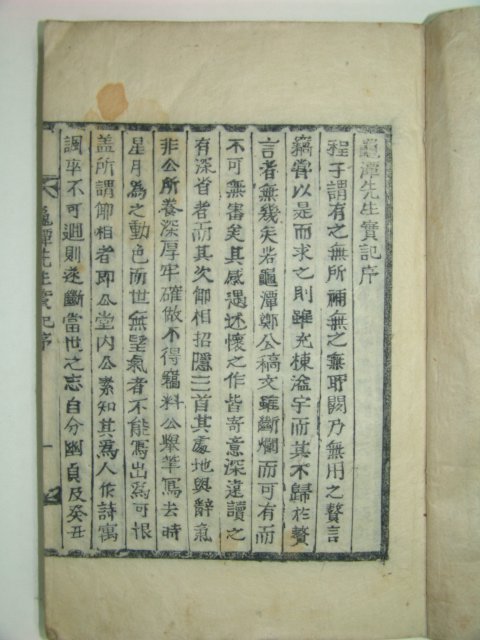 龜潭先生實記序
程子謂有之無所補無之無所闕乃無用之贅言
竊嘗以是而求之則雖充棟溢宇而其不歸於贅
言者無幾矣若龜潭鄭公稿文雖斷爛而可有而
不可無審矣其感遇述懷之作皆寄意深遠讀之
有深旨者而其次仰相招隱三首其處地與辭氣
非公所養深厚牢確做不得竊料公擧筆寫去時
星月為之動色而世無望氣者不能寫出為可恨
盖所謂仰相者即公堂內公素知其為人作詩寓
諷卒不可迴則遂斷當世之志自分幽貞及癸丑
龜潭先生實記序
一